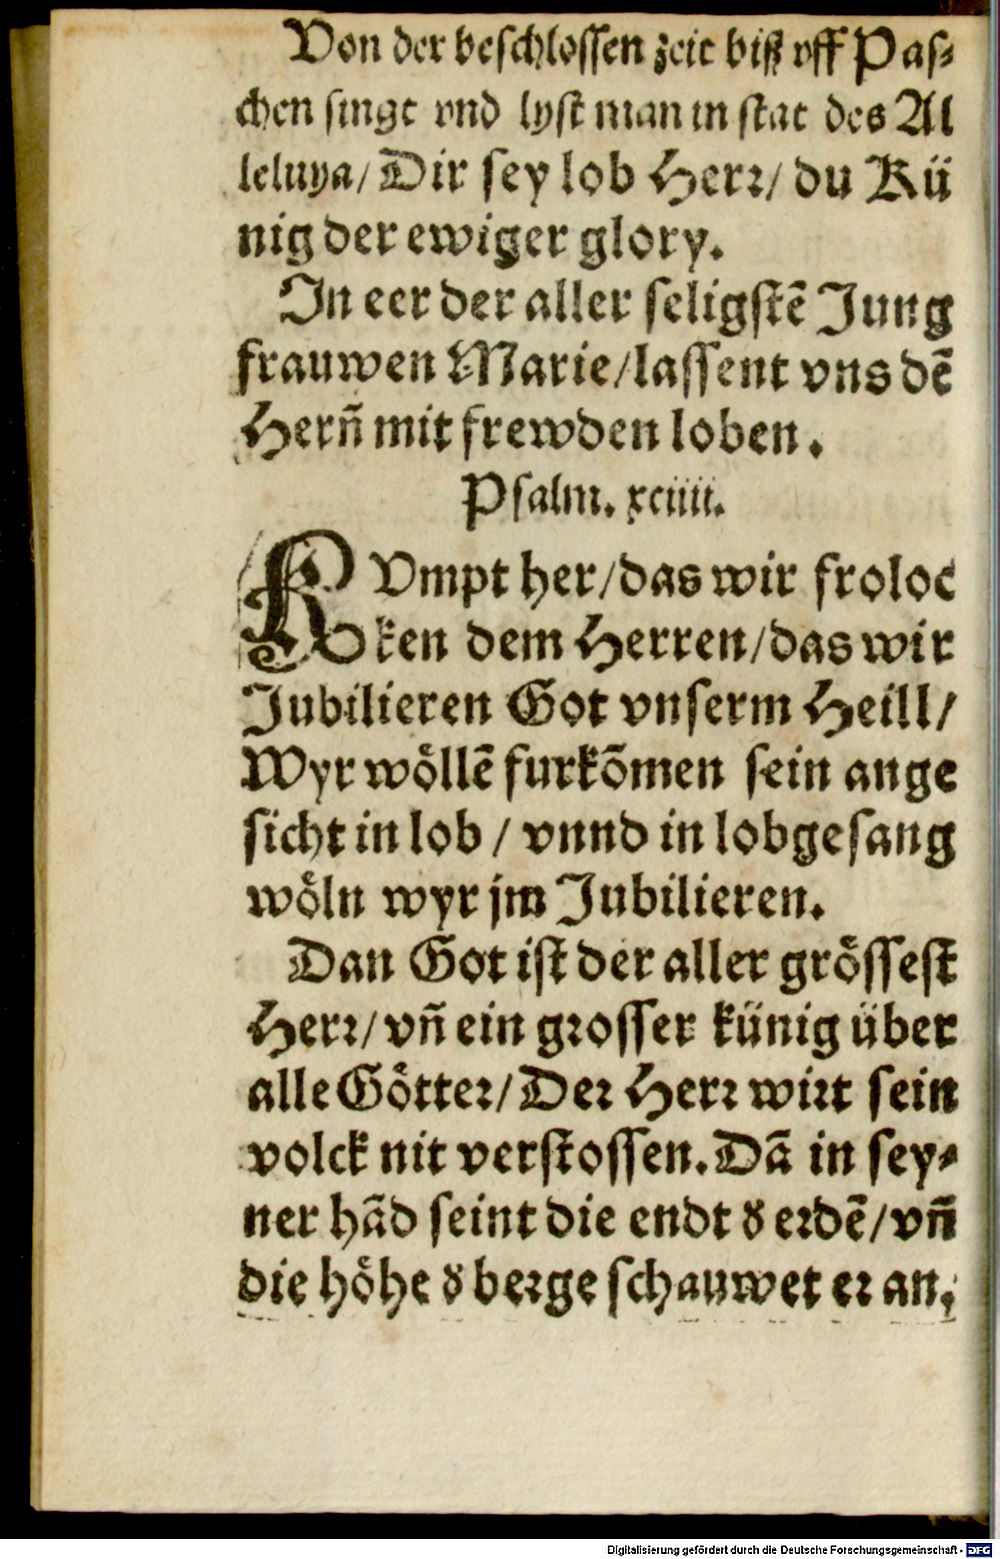 Von der beschlossen zeit biß vff Pas⸗
chen singt vnd lyst man in stat des Al
leluya/ Dir sey lob Herr/ du Kü
nig der ewiger glory.
In eer der aller seligstē Jung
frauwen Marie/lassent vns dē
Herñ mit frewden loben.
Psalm. xciiii.
KVmpt her/das wir froloc
ken dem Herren/das wir
Jubilieren Got vnserm Heill/
Wyr woͤllē furkōmen sein ange
sicht in lob / vnnd in lobgesang
woͤln wyr jm Jubilieren.
Dan Got ist der aller groͤssest
Herr/ vñ ein grosser künig über
alle Goͤtter/ Der Herr wirt sein
volck nit verstossen. Dā in sey⸗
ner hād seint die endt ð erdē/ vñ
die hoͤhe ð berge schauwet er an,
Digitalisierung gefördert durch die Deutsche Forschungsgemeinschaft - DFG